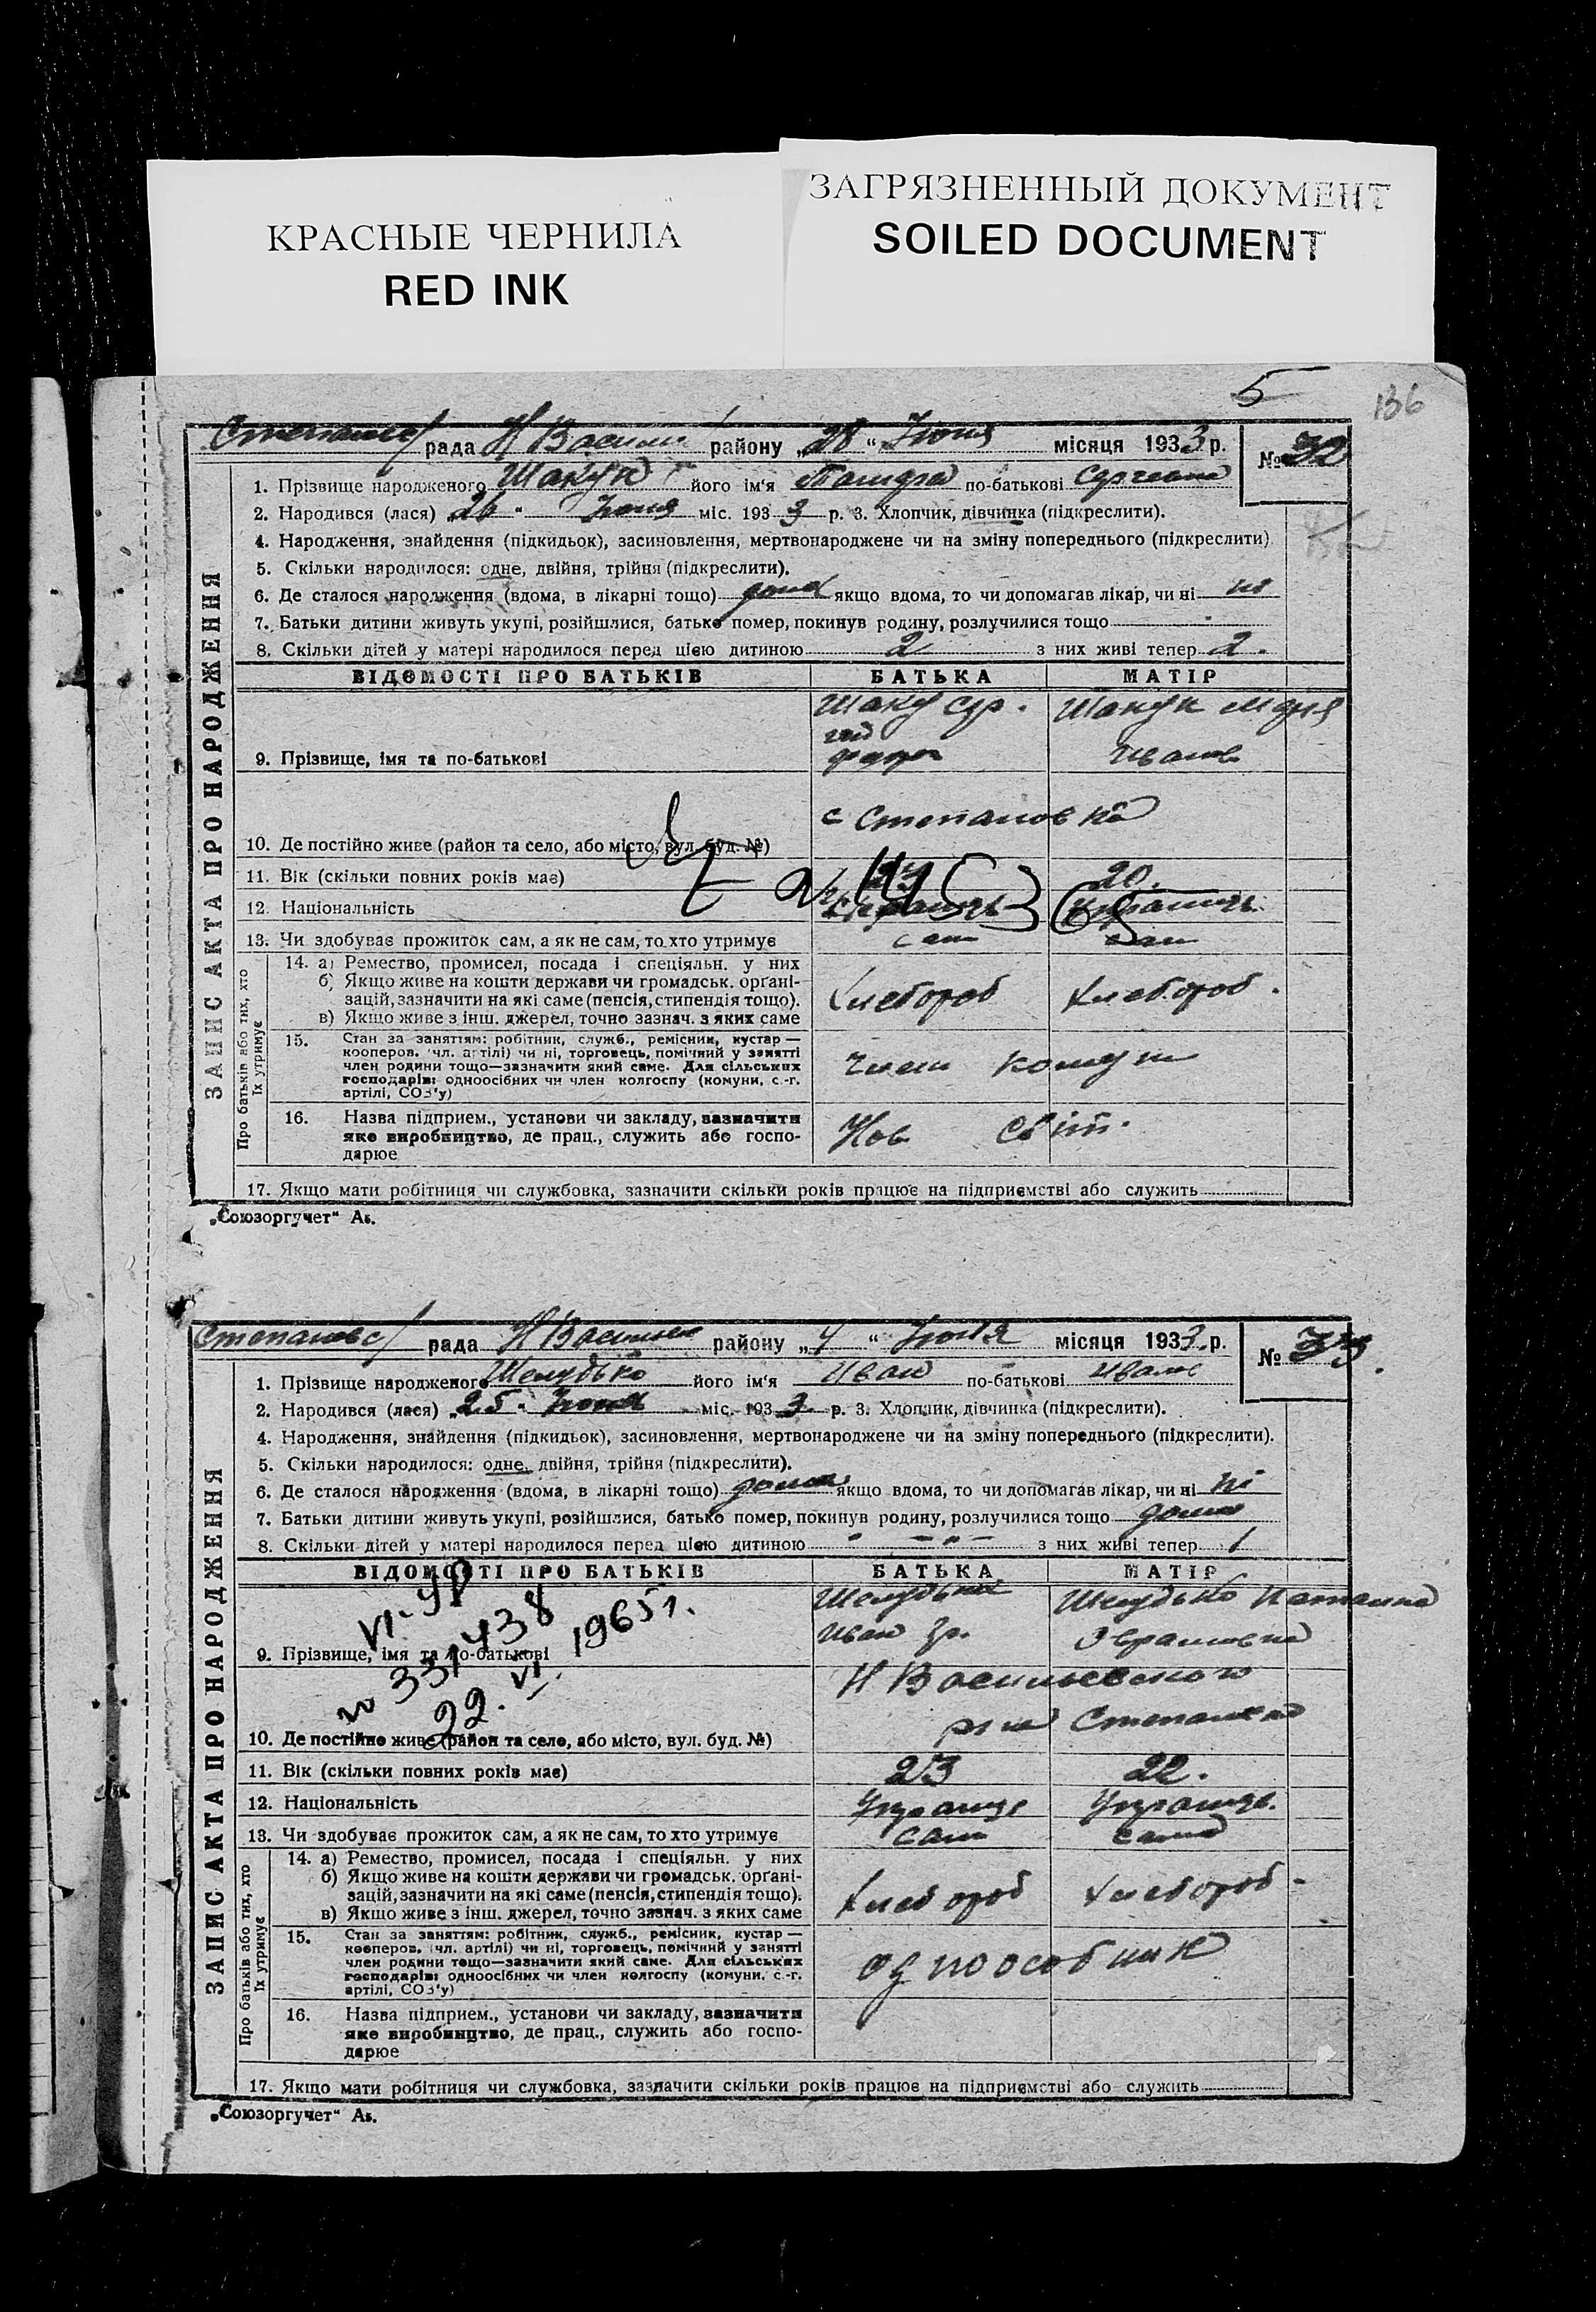 КРАСНЫЕ ЧЕРНИЛА
RED INK
ЗАГРЯЗНЕННЫЙ ДОКУМЕНТ
SOILED DOCUMENT
5
136
рада Н Васили району „28“ Июня місяця 1933 р.
№ 32
ЗАПИС АКТА ПРО НАРОДЖЕННЯ
1. Прізвище народженого Шакун його ім'я по-батькові
2. Народився (лася) „26“ Июня міс. 1933 р. 3. Хлопчик, дівчинка (підкреслити).
4. Народження, знайдення (підкидьок), засиновлення, мертвонароджене чи на зміну попереднього (підкреслити)
5. Скільки народилося: одне, двійня, трійня (підкреслити).
6. Де сталося народження (вдома, в лікарні тощо) дома якщо вдома, то чи допомагав лікар, чи ні ні
7. Батьки дитини живуть укупі, розійшлися, батько помер, покинув родину, розлучилися тощо
8. Скільки дітей у матері народилося перед цією дитиною 2 з них живі тепер 2.
ВІДОМОСТІ ПРО БАТЬКІВ БАТЬКА МАТІР
Шаку Сер. Шакун
Иванов
9. Прізвище, імя та по-батькові
с Степановка
10. Де постійно живе (район та село, або місто, вул. буд. №)
11. Вік (скільки повних років має) 20.
12. Національність
13. Чи здобуває прожиток сам, а як не сам, то хто утримує сам сам
Про батьків або тих, хто їх утримує
14. а) Ремество, промисел, посада і спеціяльн. у них
б) Якщо живе на кошти держави чи громадськ. орґані-
зацій, зазначити на які саме (пенсія, стипендія тощо).
в) Якщо живе з інш. джерел, точно зазнач. з яких саме
Хлебороб Хлебороб.
15. Стан за заняттям: робітник, служб., ремісник, кустар —
кооперов. (чл. артілі) чи ні, торговець, помічний у занятті
член родини тощо—зазначити який саме. Для сільських
господарів: одноосібних чи член колгоспу (комуни, с.-г.
артілі, СОЗ'у)
член комун
16. Назва підприєм., установи чи закладу, зазначити
яке виробництво, де прац., служить або госпо-
дарює
Нов Світ.
17. Якщо мати робітниця чи службовка, зазначити скільки років працює на підприємстві або служить
„Союзоргучет“ Аѕ.
Степановс рада Н Васильев району „4“ Июля місяця 1933 р.
№ 33.
ЗАПИС АКТА ПРО НАРОДЖЕННЯ
1. Прізвище народженого Шелудько його ім'я Иван по-батькові Иванс
2. Народився (лася) „25“ Июня міс. 1933 р. 3. Хлопчик, дівчинка (підкреслити).
4. Народження, знайдення (підкидьок), засиновлення, мертвонароджене чи на зміну попереднього (підкреслити).
5. Скільки народилося: одне, двійня, трійня (підкреслити).
6. Де сталося народження (вдома, в лікарні тощо) дома якщо вдома, то чи допомагав лікар, чи ні ні
7. Батьки дитини живуть укупі, розійшлися, батько помер, покинув родину, розлучилися тощо дома
8. Скільки дітей у матері народилося перед цією дитиною - - „ - з них живі тепер 1
ВІДОМОСТІ ПРО БАТЬКІВ БАТЬКА МАТІР
Шелудько Шелудько Наталка
Иван Гр.
9. Прізвище, імя та по-батькові
№ 331438
22.VI.1965 г.
Н Васильевского
р-на Степановка
10. Де постійно живе (район та село, або місто, вул. буд. №)
11. Вік (скільки повних років має) 23 22.
12. Національність Украинце Украинце.
13. Чи здобуває прожиток сам, а як не сам, то хто утримує сам сама
Про батьків або тих, хто їх утримує
14. а) Ремество, промисел, посада і спеціяльн. у них
б) Якщо живе на кошти держави чи громадськ. орґані-
зацій, зазначити на які саме (пенсія, стипендія тощо).
в) Якшо живе з інш. джерел, точно зазнач. з яких саме
Хлебороб Хлебороб.
15. Стан за заняттям: робітник, служб., ремісник, кустар —
кооперов. (чл. артілі) чи ні, торговець, помічний у занятті
член родини тощо—зазначити який саме. Для сільських
господарів: одноосібних чи член колгоспу (комуни, с.-г.
артілі, СОЗ'у)
одноособник
16. Назва підприєм., установи чи закладу, зазначити
яке виробництво, де прац., служить або госпо-
дарює
17. Якщо мати робітниця чи службовка, зазначити скільки років працює на підприємстві або служить
„Союзоргучет“ Аѕ.